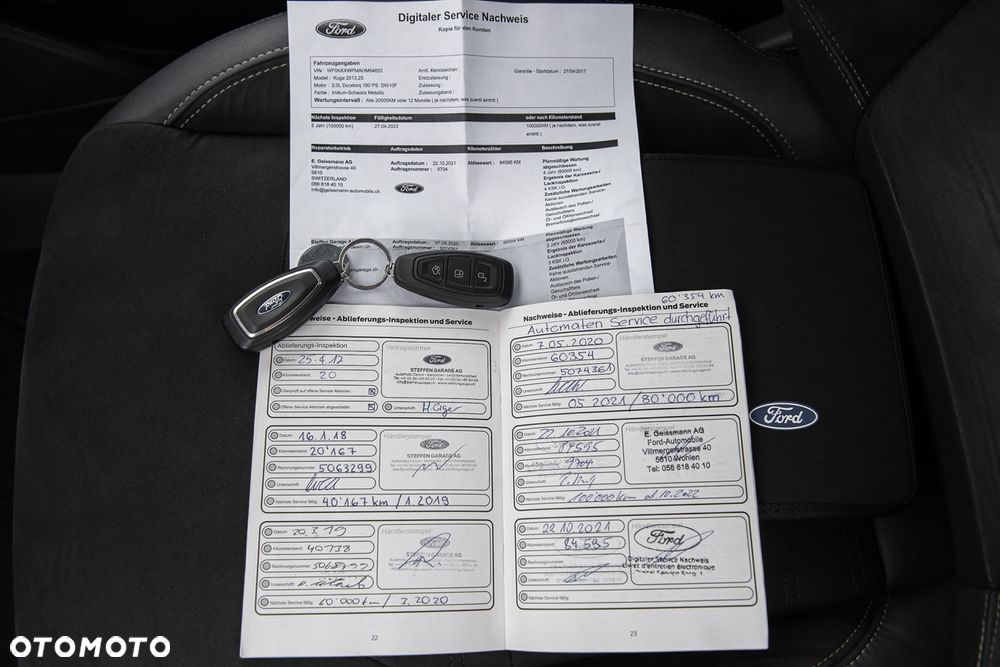 Ford
Digitaler Service Nachweis
Kopie für den Kunden
Fahrzeugangaben
VIN : WF0AXXWPMAHM64653
Amtl. Kennzeichen :
Garantie - Startdatum : 27/04/2017
Modell : Kuga 2013.25
Erstzulassung :
Motor : 2.0L Duratorq 180 PS DW10F
Zulassung :
Farbe : Iridium-Schwarz Metallic
Zulassungsland :
Wartungsintervall : Alle 20000KM oder 12 Monate ( je nachdem, was zuerst eintritt )
Nächste Inspektion
Fälligkeitsdatum
oder nach Kilometerstand
5 Jahr (100000 km)
27.04.2022
100000KM ( je nachdem, was zuerst
eintritt )
Reparaturbetrieb
Auftragsdaten
Kilometerzähler
Beschreibung
E. Geissmann AG
Villmergerstrasse 40
5610
SWITZERLAND
056 618 40 10
info@geissmann-automobile.ch
Auftragsdatum : 22.10.2021
Auftragsnummer : 9704
Ford
Ablesewert : 84595 KM
Planmäßige Wartung
abgeschlossen
4 Jahr (80000 km)
Ergebnis der Karosserie-/
Lackinspektion
4 KSK I.O.
Zusätzliche Wartungsarbeiten
Keine ausstehenden Service-
Aktionen
Austausch des Pollen-/
Geruchsfilters
Öl- und Ölfilterwechsel
Bremsflüssigkeitswechsel
Steffen Garage AG
Auftragsdatum : 07.05.2020
Auftragsnummer : 5074361
Ablesewert : 60354 KM
Planmäßige Wartung
abgeschlossen
3 Jahr (60000 km)
Ergebnis der Karosserie-/
Lackinspektion
3 KSK I.O.
Zusätzliche Wartungsarbeiten
Keine ausstehenden Service-
Aktionen
Austausch des Pollen-/
Geruchsfilters
Öl- und Ölfilterwechsel
Ford
Nachweise - Ablieferungs-Inspektion und Service
Ablieferungs-Inspektion
Datum: 25.4.17
Kilometerstand: 20
Überprüft auf offene Service Aktionen
Offene Service Aktionen abgearbeitet:
Vertragspartner
Ford
STEFFEN GARAGE AG
Unterschrift:
Datum: 16.1.18
Kilometerstand: 20'167
Rechnungsnummer: 5063299
Unterschrift:
Nächste Service fällig: 40'167 km / 1.2019
Händlerstempel
Ford
STEFFEN GARAGE AG
Datum: 20.3.19
Kilometerstand: 40738
Rechnungsnummer:
Unterschrift:
Nächste Service fällig: 60'000 km / 3.2020
Händlerstempel
STEFFEN GARAGE AG
22
60'354 km
Nachweise - Ablieferungs-Inspektion und Service
Automaten Service durchgeführt
Datum: 7.05.2020
Kilometerstand: 60354
Rechnungsnummer: 5074361
Unterschrift:
Nächste Service fällig: 05.2021 / 80'000 km
Händlerstempel
Ford
STEFFEN GARAGE AG
Datum: 22.10.2021
Kilometerstand: 84595
Rechnungsnummer: 9704
Unterschrift:
Nächste Service fällig: 100'000 km od 10.2022
Händlerstempel
E. Geissmann AG
Ford-Automobile
Villmergerstrasse 40
5610 Wohlen
Tel: 056 618 40 10
Datum: 22.10.2021
Kilometerstand: 84.595
Rechnungsnummer:
Unterschrift:
Nächste Service fällig:
Händlerstempel
Ford
Digitaler Service Nachweis
Livret d'entretien électronique
23
Ford
OTOMOTO